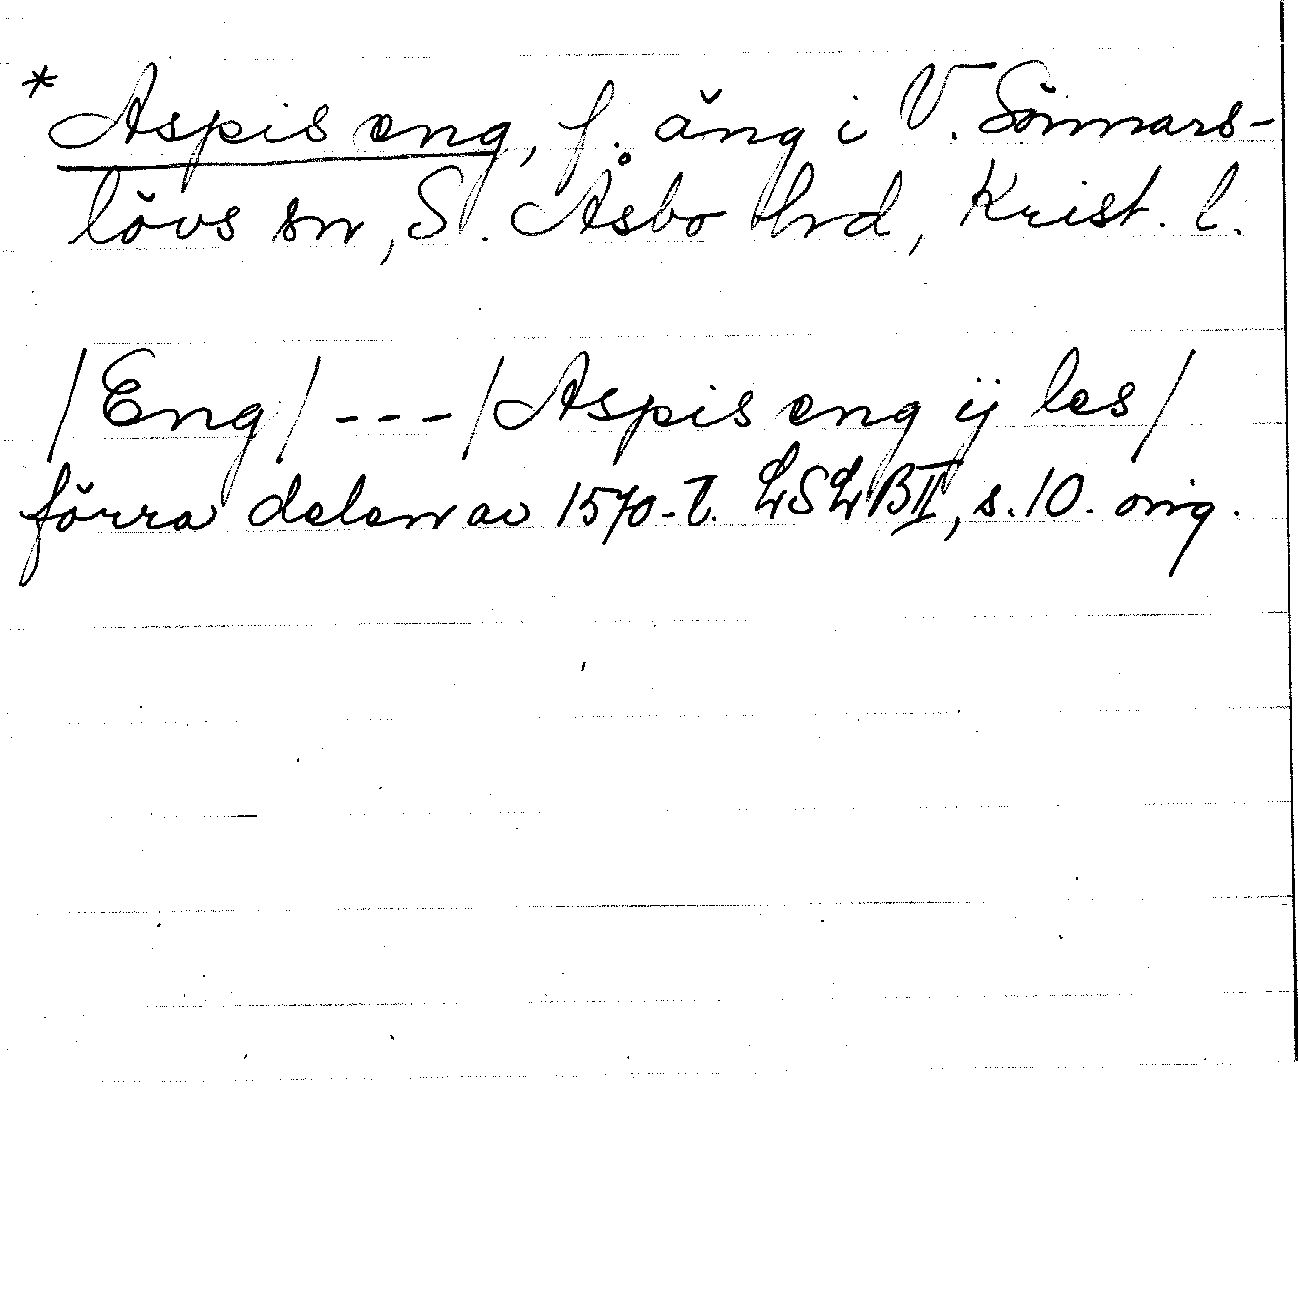 * Aspis eng, f. äng i V. Sönnars-
lövs sn, S. Åsbo hrd, Krist. l.
/Eng/ --- /Aspis eng ij les/
förra delen av 1570-t. LSLBII, s. 10. orig.